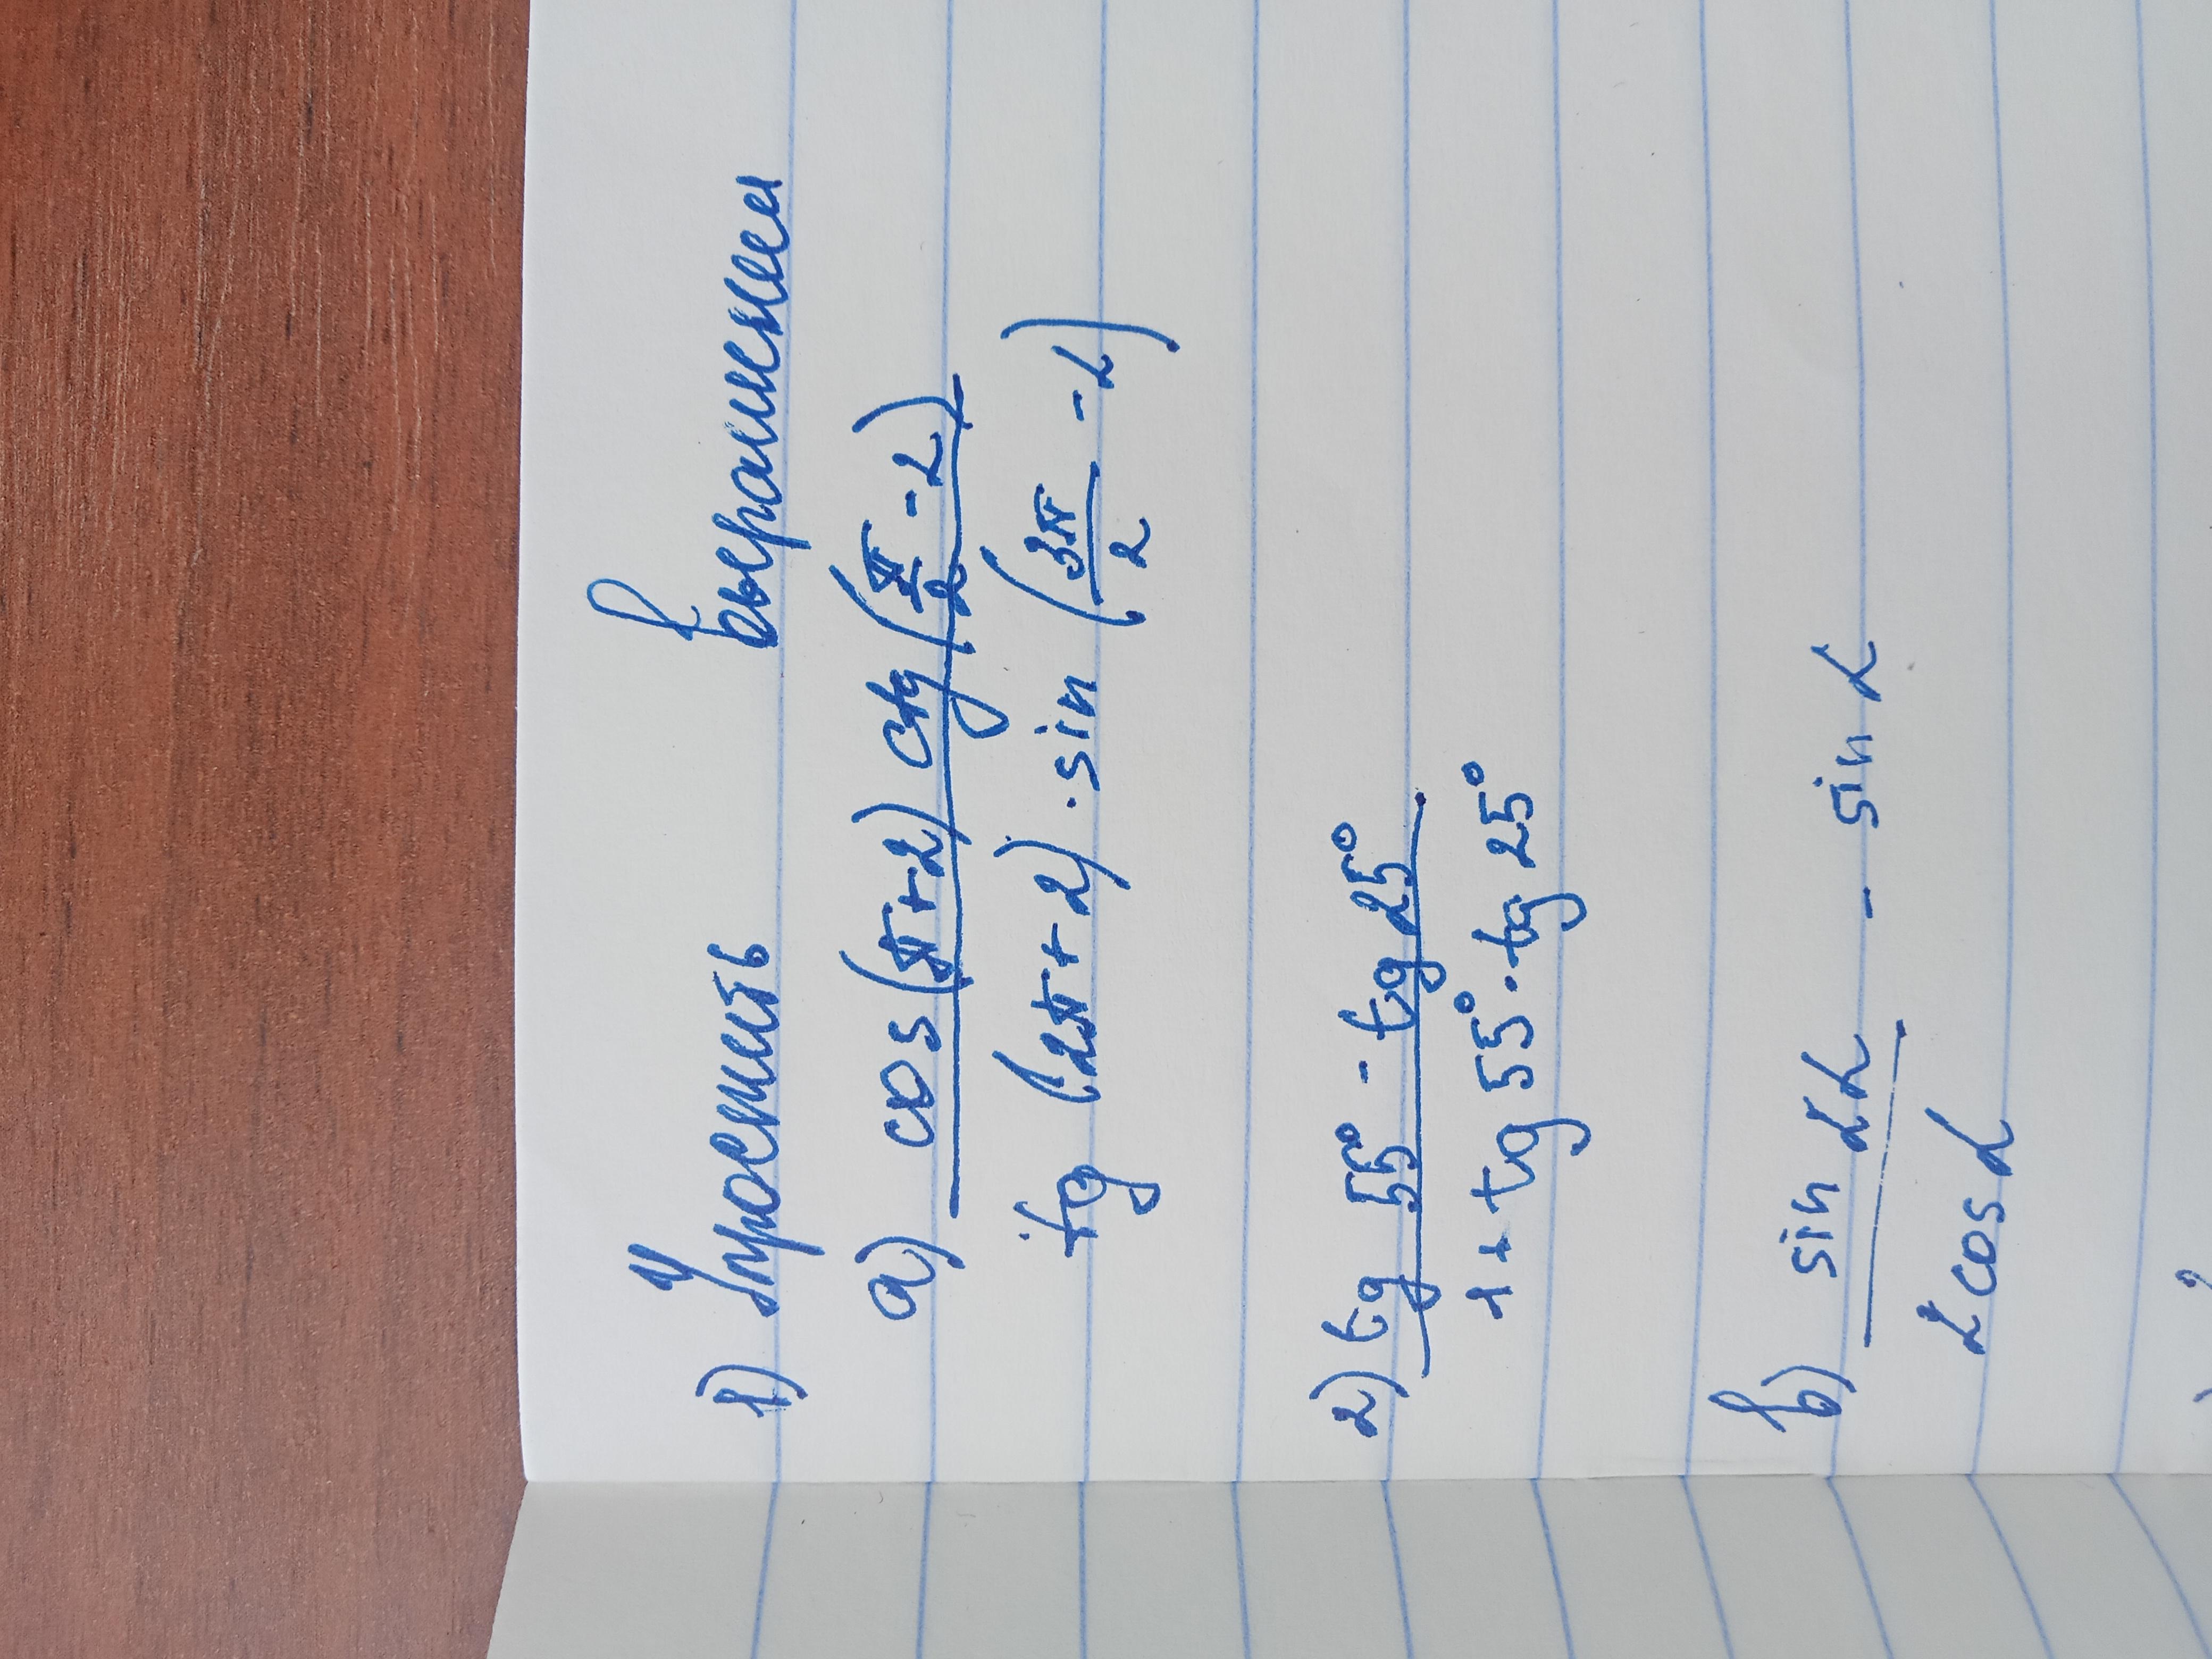 1) Упростить выражения
а) cos(π+α) ctg(π/2 -α)
tg (2π+α) · sin (3π/2 -α)
2) tg 55° - tg 25°
1 + tg 55° · tg 25°
в) sin 2α - sin α
2 cos α